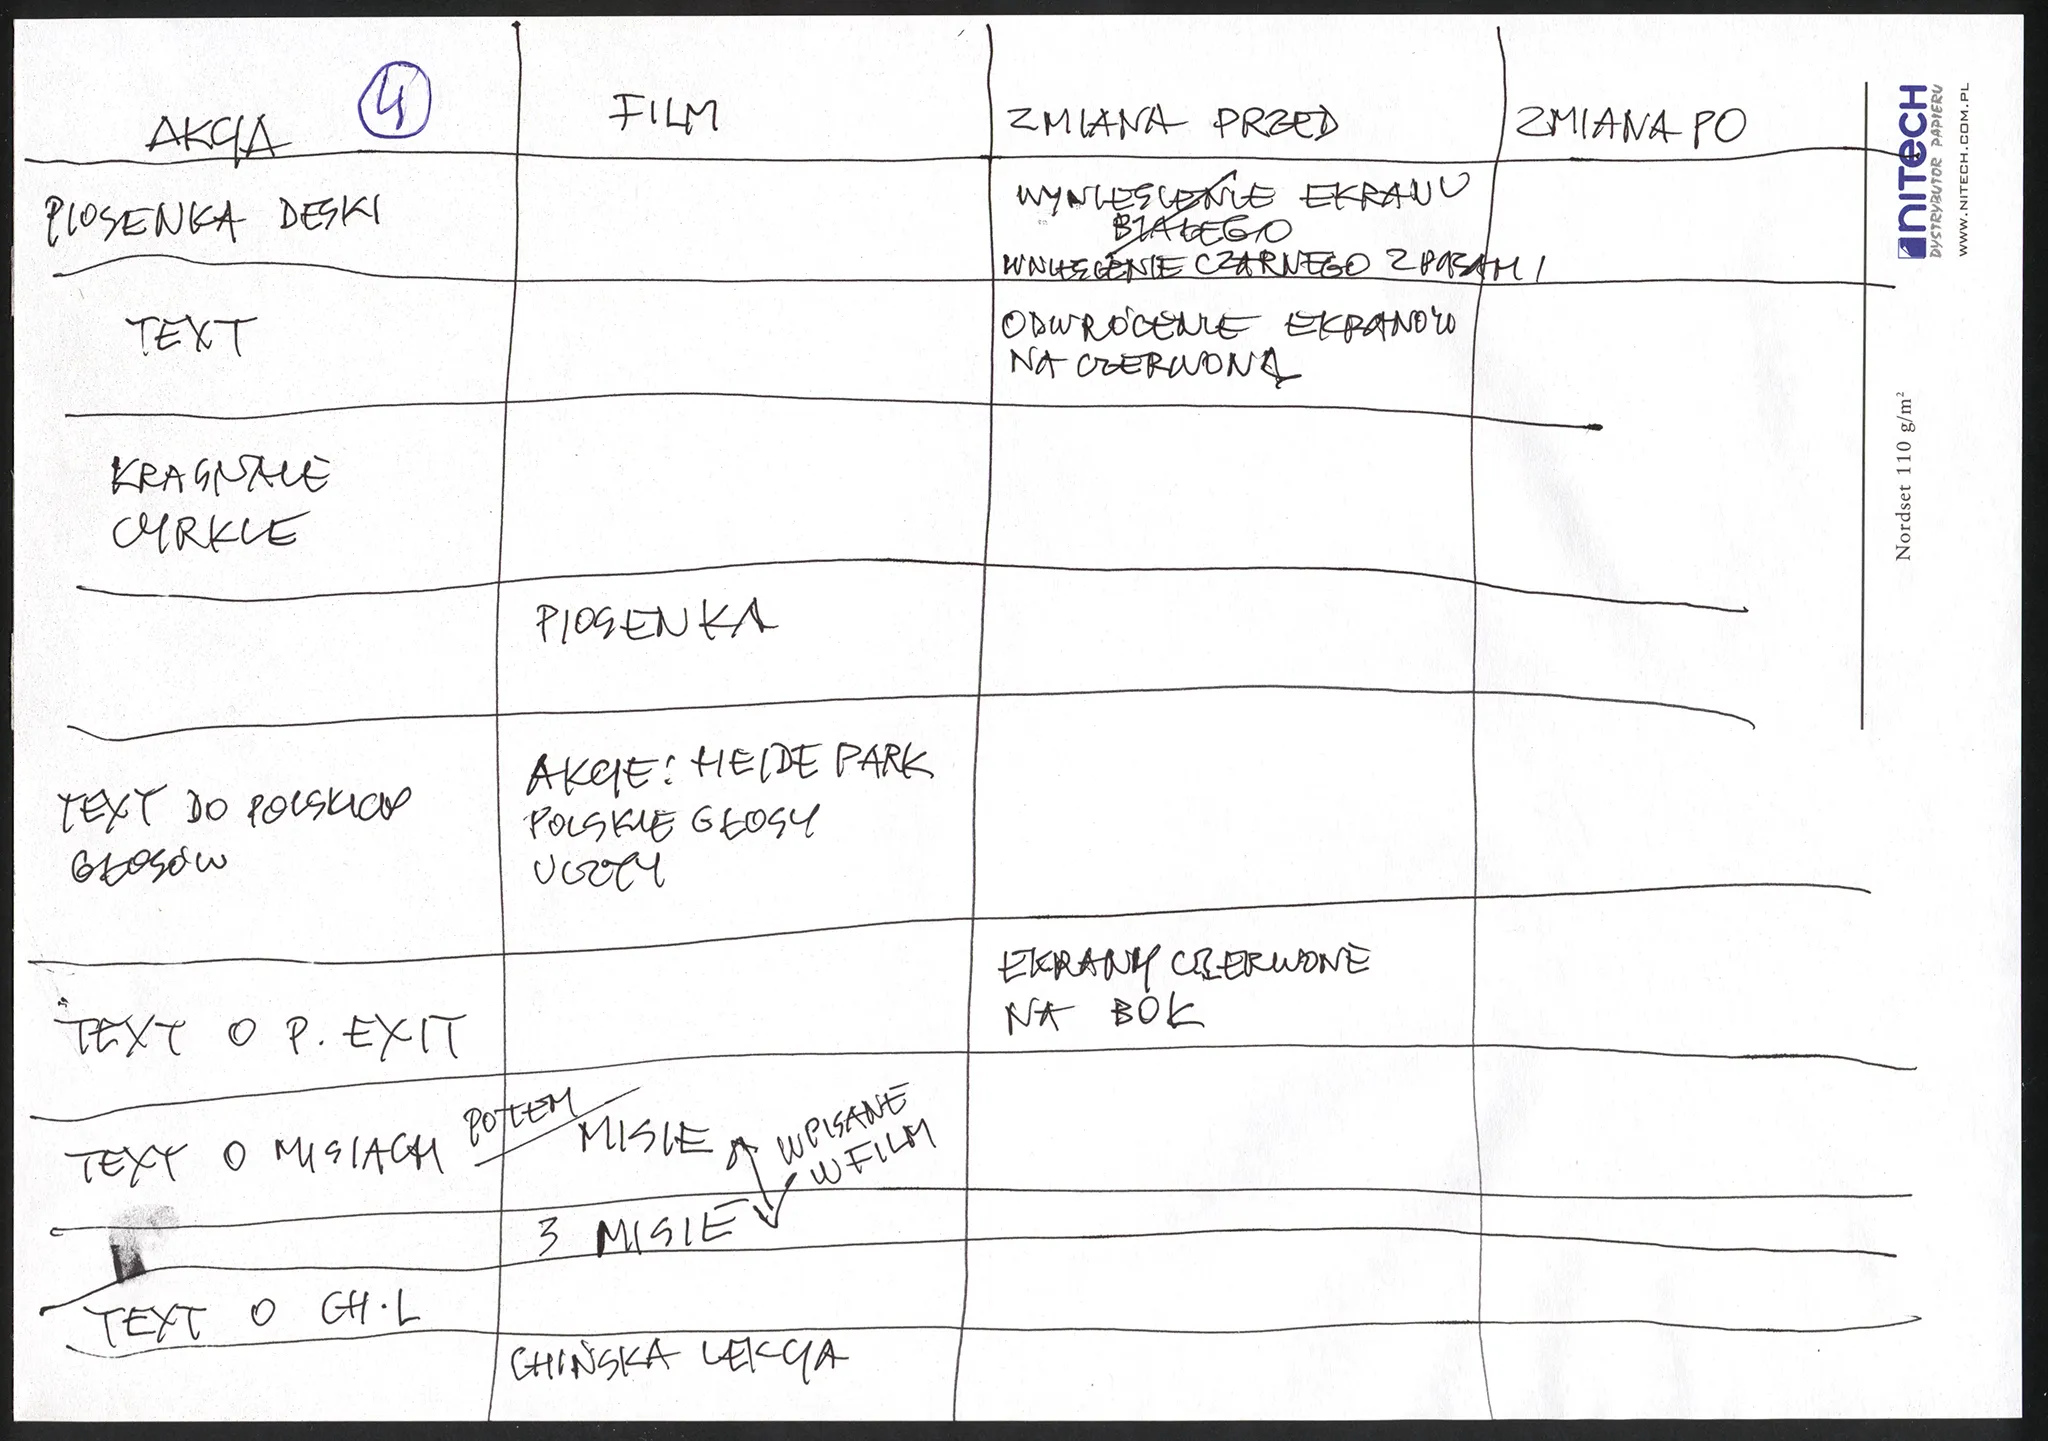 AKCJA
4
FILM
ZMIANA PRZED
ZMIANA PO
PIOSENKA DESKI
WYNIESIENIE EKRANU
BIAŁEGO
WNIESIENIE CZARNEGO Z PASAMI
TEXT
ODWRÓCENIE EKRANÓW
NA CZERWONĄ
CYRKLE
PIOSENKA
TEXT DO POLSKICH
GŁOSÓW
AKCJE: HEIDE PARK
POLSKIE GŁOSY
TEXT O P. EXIT
EKRANY CZERWONE
NA BOK
TEXT O MISIACH
POTEM
MISIE
WPISANE
W FILM
3 MISIE
TEXT O CH.L
CHIŃSKA LEKCJA
NITECH
DYSTRYBUTOR PAPIERU
WWW.NITECH.COM.PL
Nordset 110 g/m²